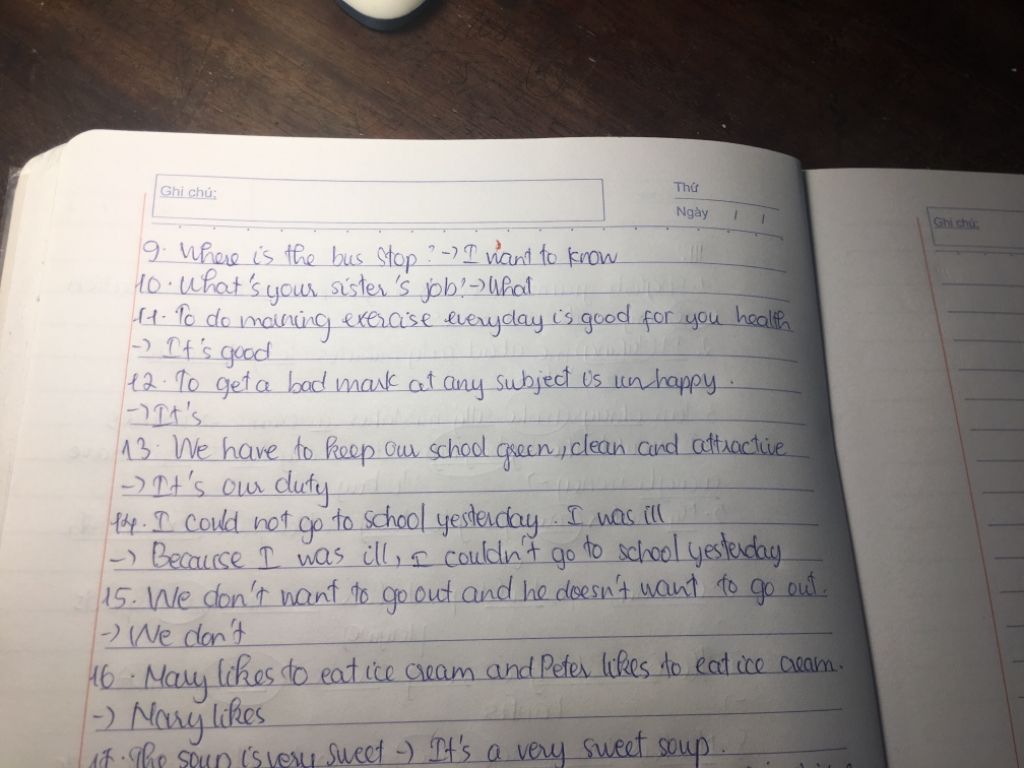 Ghi chú:
Thứ
Ngày / /
Ghi chú:
9. Where is the bus stop? -> I want to know
10. What's your sister's job? -> What
11. To do morning exercise everyday is good for you health
-> It's good
12. To get a bad mark at any subject is unhappy.
-> It's
13. We have to keep our school green, clean and attractive
-> It's our duty
14. I could not go to school yesterday. I was ill
-> Because I was ill, I couldn't go to school yesterday
15. We don't want to go out and he doesn't want to go out.
-> We don't
16. Mary likes to eat ice cream and Peter likes to eat ice cream.
-> Mary likes
17. The soup is very sweet -> It's a very sweet soup.